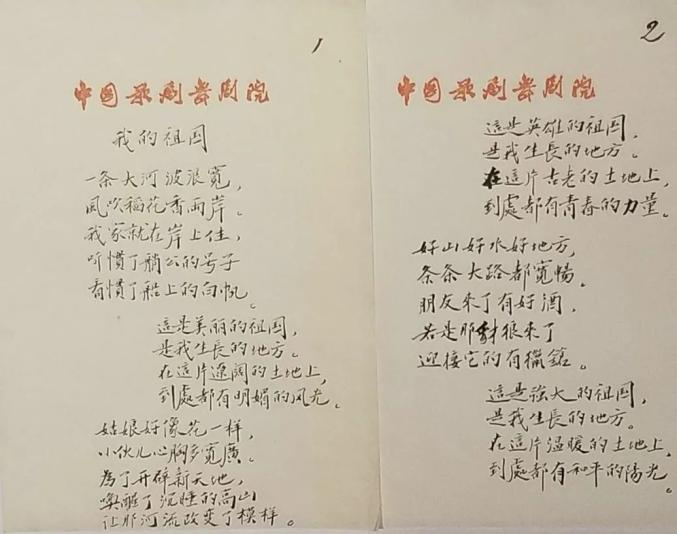 1
中国歌剧舞剧院
我的祖国
一条大河波浪宽，
风吹稻花香两岸。
我家就在岸上住，
听惯了艄公的号子
看惯了船上的白帆。
這是美丽的祖国，
是我生長的地方。
在這片遼闊的土地上，
到處都有明媚的风光。
姑娘好像花一样，
小伙儿心胸多寬廣。
為了开辟新天地，
喚醒了沉睡的高山
让那河流改变了模样。
2
中国歌剧舞剧院
這是英雄的祖国，
是我生長的地方。
在這片古老的土地上，
到處都有青春的力量。
好山好水好地方，
条条大路都寬暢。
朋友来了有好酒，
若是那豺狼来了
迎接它的有獵鎗。
這是強大的祖国，
是我生長的地方。
在這片温暖的土地上，
到處都有和平的陽光。